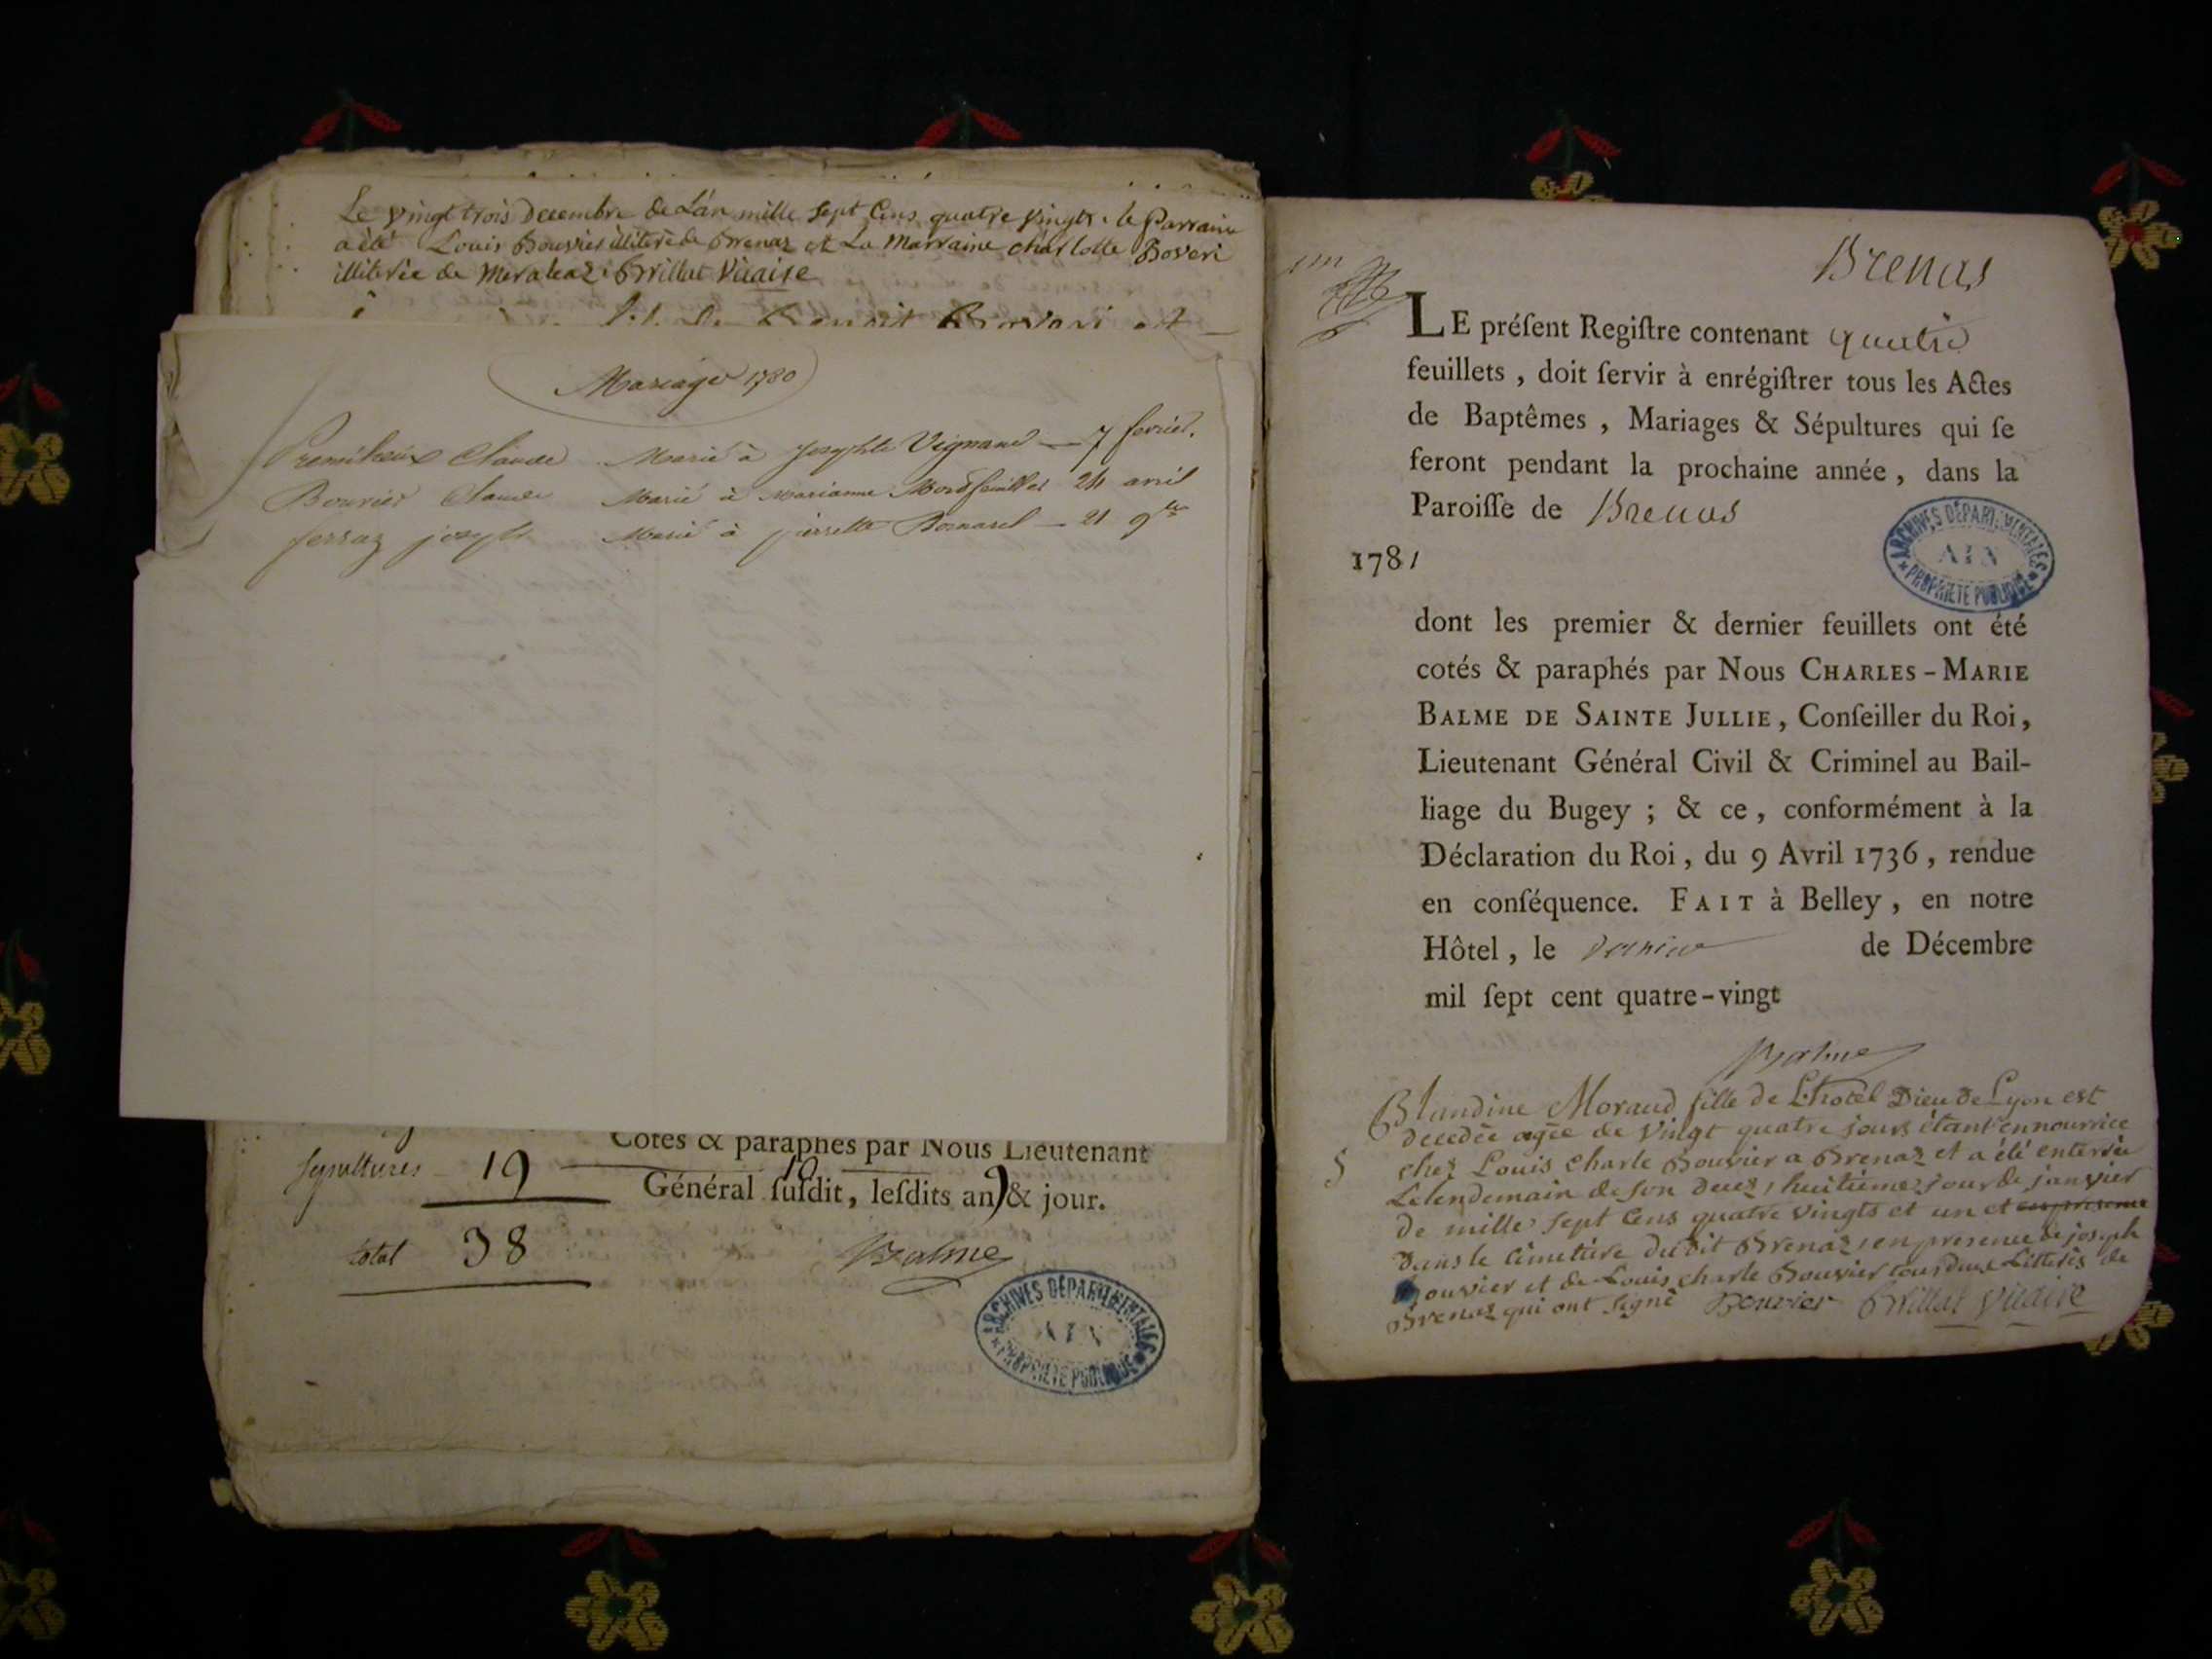 Le vingt trois Decembre de L'an mille sept Cens quatre vingts. le Parrain
a été Louis Bouvier illiteré de Brenaz et La Marraine charlotte Boveri
illiterée de Meraleaz. Brillat Vicaire
Benoit
Mariages 1780
Claude Marié à Josephte Vignand — 7 fevrier.
Bouvier Claude Marié à Marianne 24 avril
ferraz joseph Marié à pierrette — 21 9bre
Cotés & paraphés par Nous Lieutenant
Sepultures — 19 10 9
Général susdit, lesdits an & jour.
total 38
Balme
ARCHIVES DÉPARTEMENTALES
AIN
PROPRIÉTÉ PUBLIQUE
Brenas
LE préſent Regiſtre contenant quatre
feuillets, doit ſervir à enrégiſtrer tous les Actes
de Baptêmes, Mariages & Sépultures qui ſe
feront pendant la prochaine année, dans la
Paroiſſe de Brenas
1781
ARCHIVES DÉPARTEMENTALES
AIN
PROPRIÉTÉ PUBLIQUE
dont les premier & dernier feuillets ont été
cotés & paraphés par Nous CHARLES-MARIE
BALME DE SAINTE JULLIE, Conſeiller du Roi,
Lieutenant Général Civil & Criminel au Bail-
liage du Bugey ; & ce, conformément à la
Déclaration du Roi, du 9 Avril 1736, rendue
en conſéquence. FAIT à Belley, en notre
Hôtel, le dernier de Décembre
mil ſept cent quatre-vingt
Balme
Blandine Moraud fille de L'hotel Dieu de Lyon est
decedée agée de vingt quatre jours étant ennourrice
S chez Louis Charle Bouvier a Brenaz et a été enterrée
Le lendemain de son decez, huitieme jour de janvier
de mille sept Cens quatre vingts et un et en presence
dans le cimetiere dudit Brenaz, en presence de joseph
Bouvier et de Louis charle Bouvier tous deux Litterés de
Brenaz qui ont signé Bouvier Brillat Vicaire